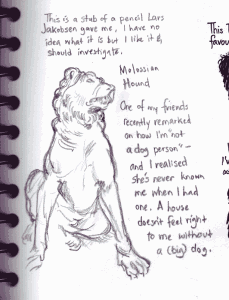 This is a stub of a pencil Lars
Jakobsen gave me, I have no
idea what it is but I like it &
should investigate.
Molossian
Hound
One of my friends
recently remarked
on how I'm "not
a dog person" –
and I realised
she's never known
me when I had
one. A house
doesn't feel right
to me without
a (big) dog.
This
favou